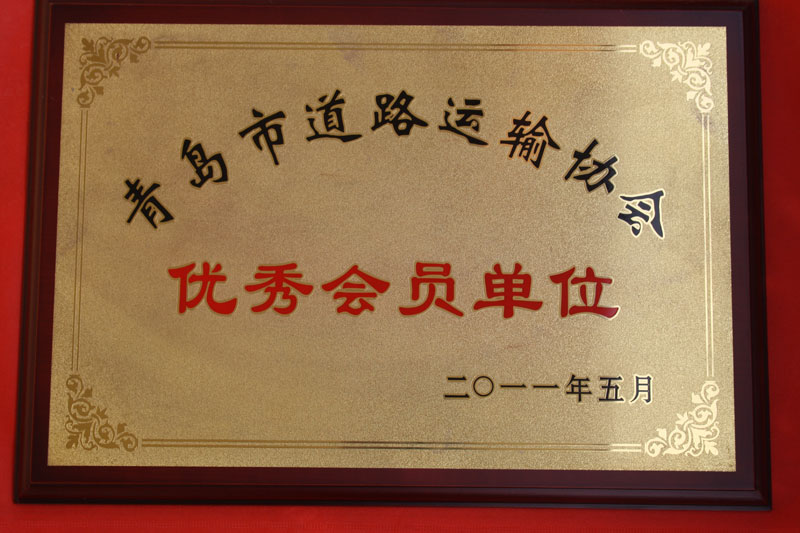 青岛市道路运输协会
优秀会员单位
二〇一一年五月